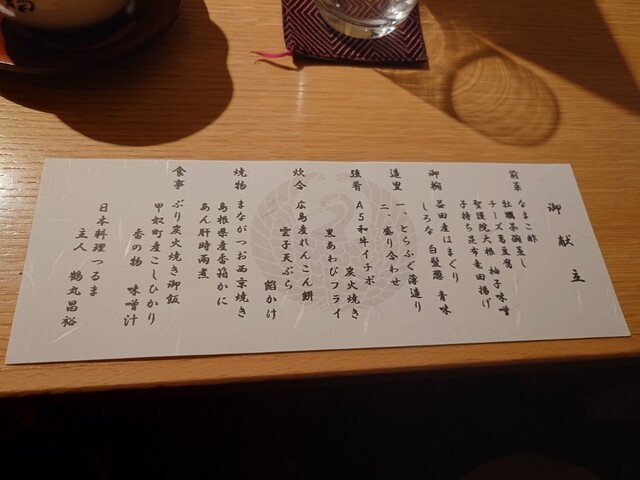 御献立
前菜 なまこ酢
牡蠣茶碗蒸し
チーズ葛豆腐
聖護院大根 柚子味噌
子持ち昆布竜田揚げ
御椀 益田産はまぐり
しろな 白髪葱 青味
造里 一、とらふぐ薄造り
二、盛り合わせ
強肴 A5和牛イチボ 炭火焼き
黒あわびフライ
炊合 広島産れんこん餅
雲子天ぷら 餡かけ
焼物 まながつお西京焼き
島根県産香箱かに
あん肝時雨煮
食事 ぶり炭火焼き御飯
甲奴町産こしひかり
香の物 味噌汁
日本料理つるま
主人 鶴丸昌裕